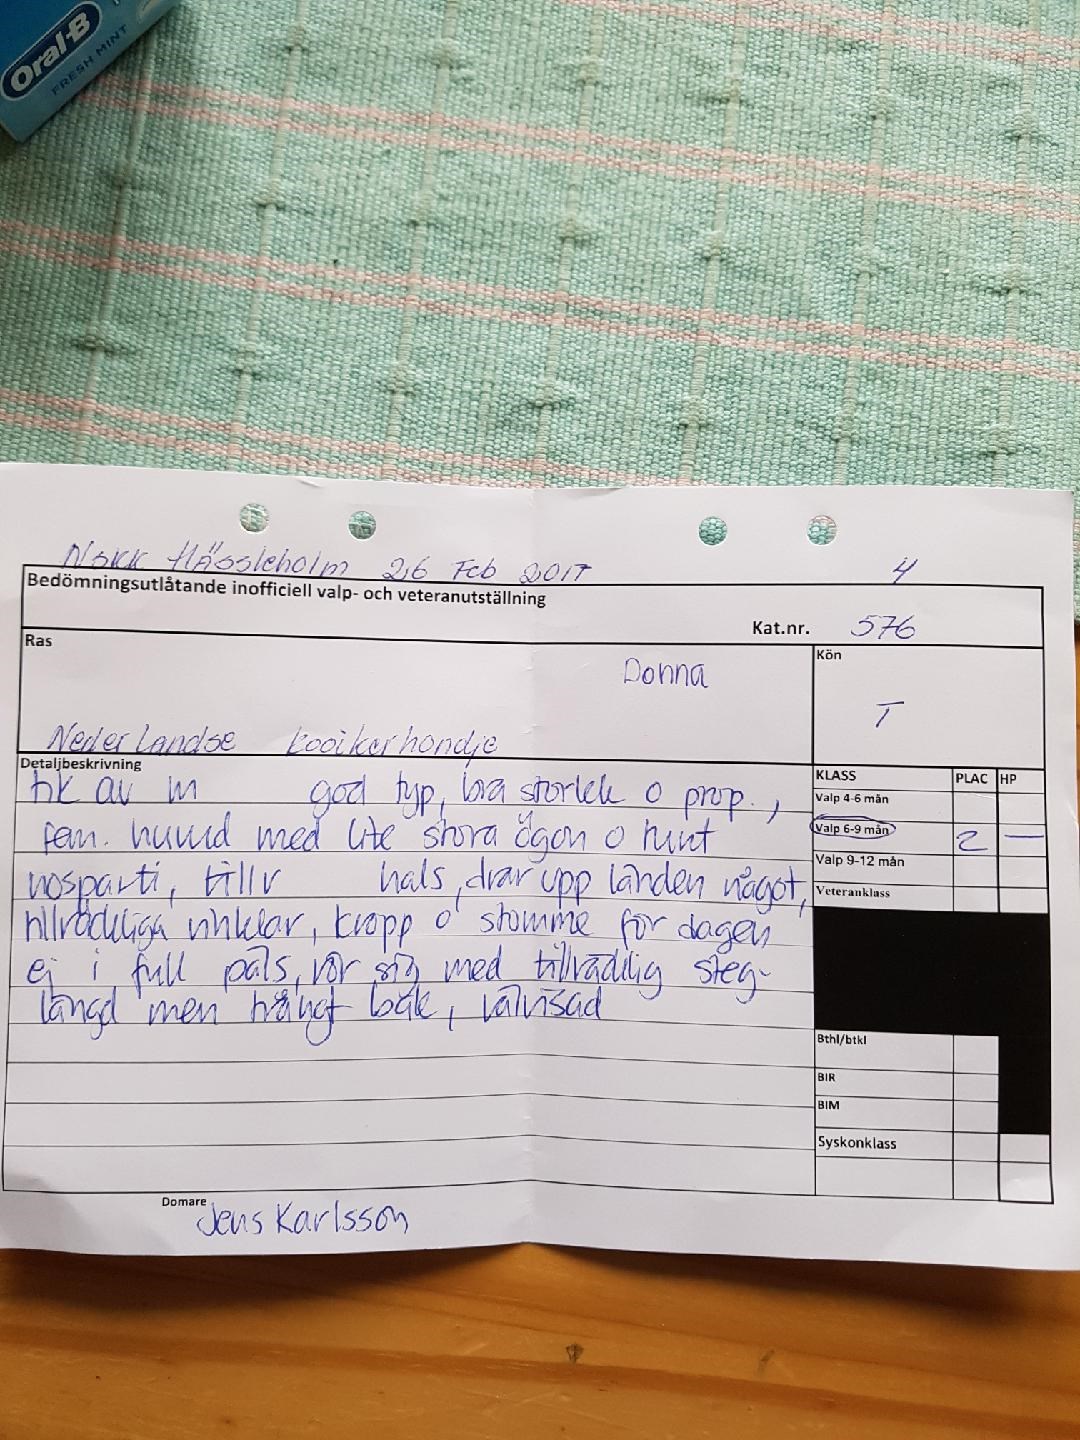 Oral-B
FRESH MINT
NSKK Hässleholm 26 Feb 2017 4
Bedömningsutlåtande inofficiell valp- och veteranutställning
Kat.nr. 576
Ras
Donna
Nederlandse kooikerhondje
Kön
T
Detaljbeskrivning
tik av m god typ, bra storlek o prop.,
fem. huvud med lite stora ögon o runt
nosparti, tillr hals, drar upp länden något,
tillräckliga vinklar, kropp o stomme för dagen
ej i full päls, rör sig med tillräcklig steg-
längd men trångt bak, välvisad
KLASS PLAC HP
Valp 4-6 mån
Valp 6-9 mån 2 —
Valp 9-12 mån
Veteranklass
Bthl/btkl
BIR
BIM
Syskonklass
Domare Jens Karlsson